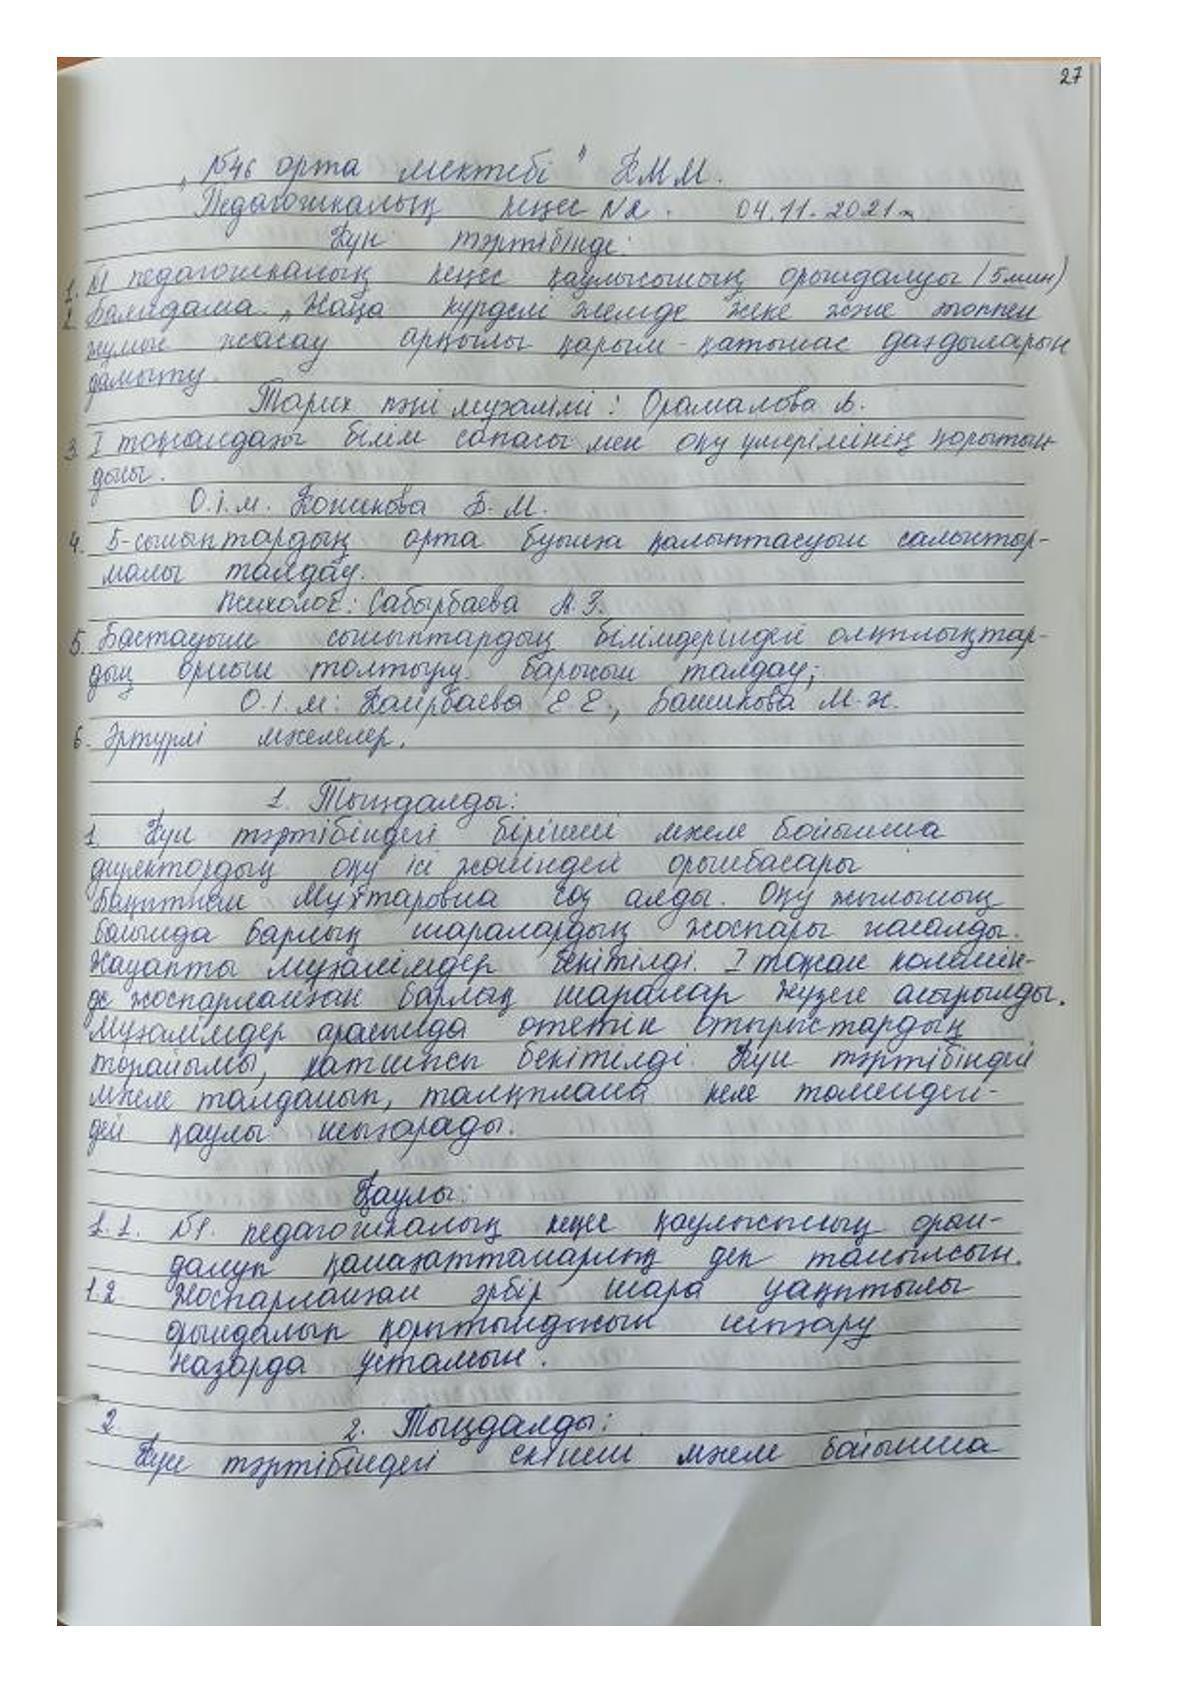 27
„№46 орта мектебі" КММ.
Педагогикалық кеңес №2. 04.11.2021ж
Күн тәртібінде:
1. №1 педагогикалық кеңес қаулысының орындалуы (5мин)
2. Баяндама. „Жаңа күрделі әлемде жеке және топпен
жұмыс жасау арқылы қарым-қатынас дағдыларын
дамыту.
Тарих пәні мұғалімі: Орамалова А.
3. I тоқсандағы білім сапасы мен оқу үлгерімінің қорытын
дысы.
О.І.м. Конысова Б.М.
4. 5-сыныптардың орта буынға қалыптасуын салыстыр-
малы талдау.
Психолог: Сабырбаева А.З.
5. Бастауыш сыныптардың білімдеріндегі олқылықтар-
дың орнын толтыру барысын талдау;
О.І.м: Каирбаева Е.Е., Башикова М.Ж.
6. Әртүрлі мәселелер.
1. Тыңдалды:
1. Күн тәртібіндегі бірінші мәселе бойынша
директордың оқу ісі жөніндегі орынбасары
Бақытжам Мұхтаровна сөз алды. Оқу жылының
басында барлық шаралардың жоспары жасалды.
Жауапты мұғалімдер бекітілді. I тоқсан көлемін-
де жоспарланған барлық шаралар жүзеге асырылды.
Мұғалімдер арасында өтетін отырыстардың
төрайымы, хатшысы бекітілді. Күн тәртібіндегі
мәселе талданып, талқылана келе төмендегі-
дей қаулы шығарады.
Қаулы:
1.1. №1. педагогикалық кеңес қаулысының орын-
далуы қанағаттанарлық деп танылсын.
1.2 Жоспарланған әрбір шара уақытылы
орындалып қорытындысын шығару
назарда ұсталсын.
2 2. Тыңдалды:
Күн тәртібіндегі екінші мәселе бойынша